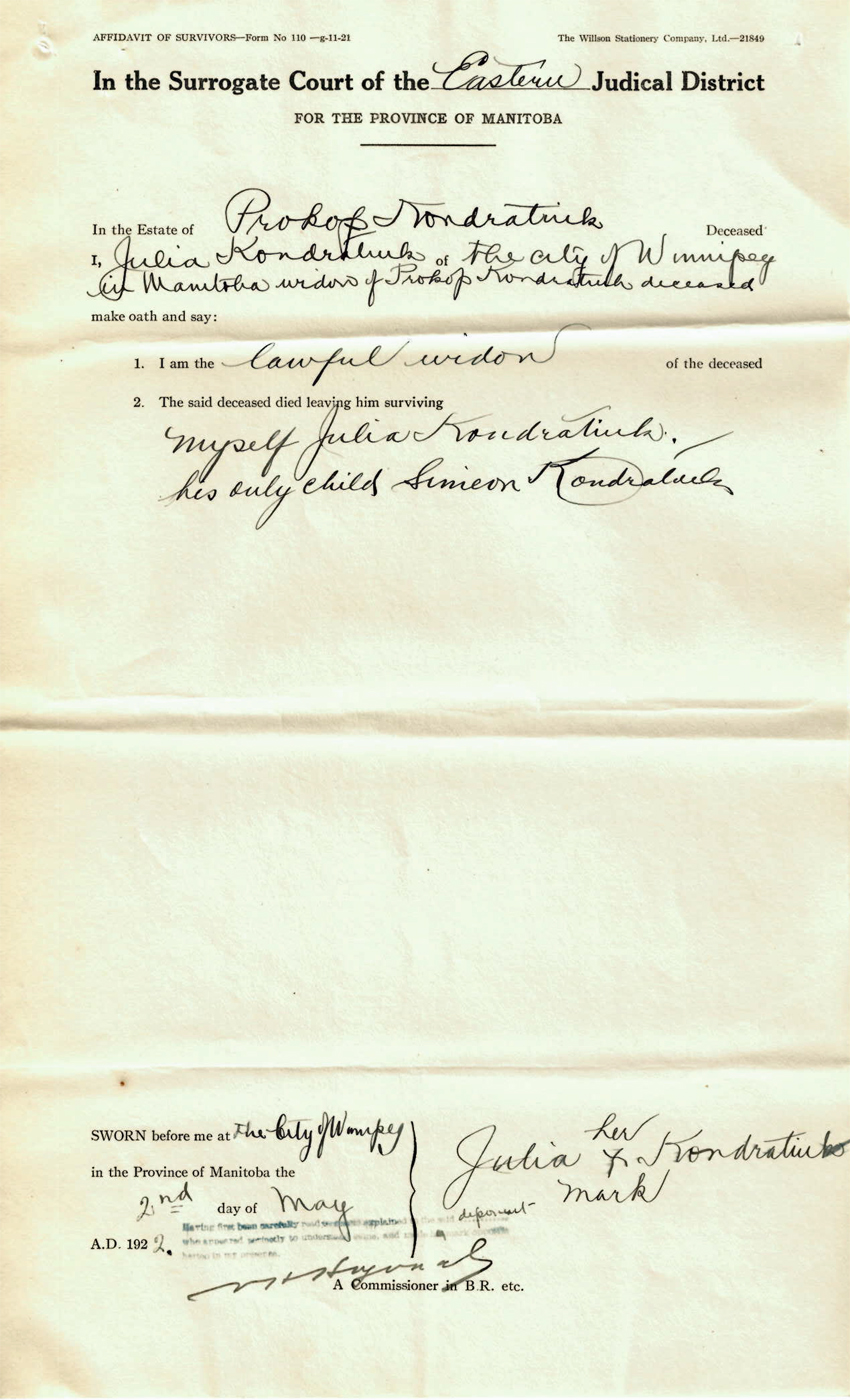 AFFIDAVIT OF SURVIVORS—Form No 110 —g-11-21 The Willson Stationery Company, Ltd.—21849
In the Surrogate Court of the Eastern Judical District
FOR THE PROVINCE OF MANITOBA
In the Estate of Prokop Kondratiuk Deceased
I, Julia Kondratiuk of the city of Winnipeg
in Manitoba widow of Prokop Kondratiuk deceased
make oath and say:
1. I am the lawful widow of the deceased
2. The said deceased died leaving him surviving
myself Julia Kondratiuk.
his only child Simeon Kondratiuk
SWORN before me at the City of Winnipeg
in the Province of Manitoba the
2nd day of May
A.D. 1922.
Having first been carefully read explained
who appeared perfectly to understand same, and
her in my presence.
her
Julia X Kondratiuk
mark
deponent
A Commissioner in B.R. etc.